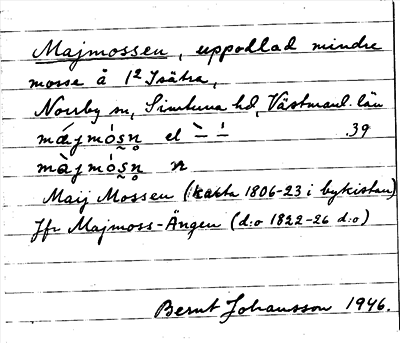 Majmossen, uppodlad mindre
mosse å 1² Isätra,
Norrby sn, Simtuna hd, Västmanl. län
mǽjmós̬n̥ el `- ´- 39
màjmós̬n̥ n
Maij Mossen (karta 1806-23 i bykistan)
Jfr Majmoss-Ängen (d:o 1822-26 d:o)
Bernt Johansson 1946.